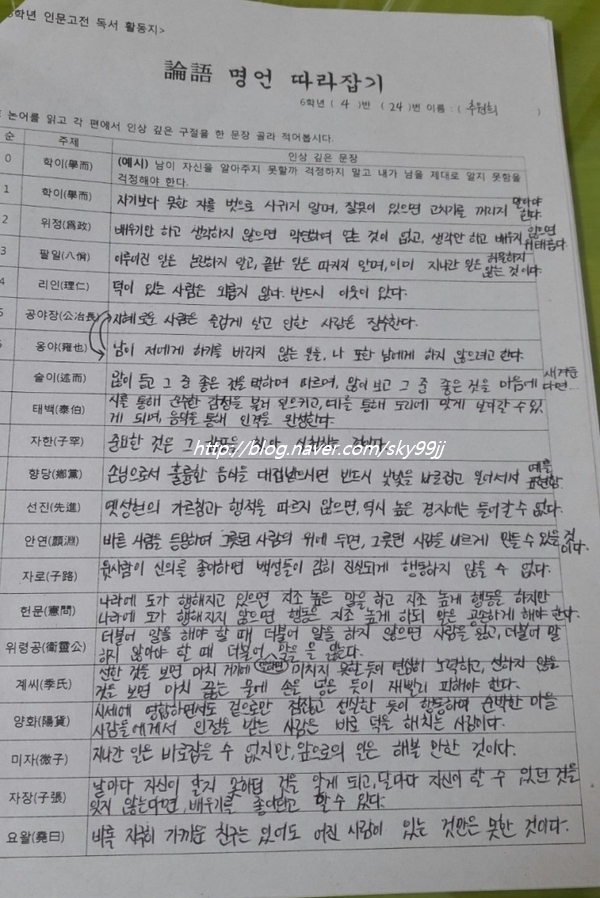 6학년 인문고전 독서 활동지>
論語 명언 따라잡기
6학년 ( 4 )반 ( 24 )번 이름 : ( 추원희 )
논어를 읽고 각 편에서 인상 깊은 구절을 한 문장 골라 적어봅시다.
순 주제 인상 깊은 문장
0 학이(學而) (예시) 남이 자신을 알아주지 못할까 걱정하지 말고 내가 남을 제대로 알지 못함을
걱정해야 한다.
1 학이(學而) 자기보다 못한 자를 벗으로 사귀지 말며, 잘못이 있으면 고치기를 꺼리지 말아야
한다.
2 위정(爲政) 배우기만 하고 생각하지 않으면 막연하여 얻는 것이 없고, 생각만 하고 배우지 않으면
위태롭다.
3 팔일(八佾) 이루어진 일은 논란하지 않고, 끝난 일은 따지지 말며, 이미 지나간 일은 허물하지
않는 것이다.
4 리인(理仁) 덕이 있는 사람은 외롭지 않다. 반드시 이웃이 있다.
공야장(公冶長) 지혜로운 사람은 즐겁게 살고 인한 사람은 장수한다.
옹야(雍也) 남이 저에게 하기를 바라지 않는 일을, 나 또한 남에게 하지 않으려고 한다.
술이(述而) 많이 듣고 그 중 좋은 것을 택하여 따르며, 많이 보고 그 중 좋은 것을 마음에 새겨둔
다면...
태백(泰伯) 시를 통해 순수한 감정을 불러 일으키고, 예를 통해 도리에 맞게 살아갈 수 있
게 되며, 음악을 통해 인격을 완성한다.
자한(子罕) 중요한 것은 그
http://blog.naver.com/sky99jj
향당(鄕黨) 손님으로서 훌륭한 음식을 대접받으시면 반드시 낯빛을 바로잡고 일어서서 예를
표현함.
선진(先進) 옛성현의 가르침과 행적을 따르지 않으면, 역시 높은 경지에는 들어갈 수 없다.
안연(顔淵) 바른 사람을 등용하여 그릇된 사람의 위에 두면, 그릇된 사람을 바르게 만들 수 있을 것
이다.
자로(子路) 윗사람이 신의를 좋아하면 백성들이 감히 진실되게 행동하지 않을 수 없다.
헌문(憲問) 나라에 도가 행해지고 있으면 지조 높은 말을 하고 지조 높게 행동을 하지만
나라에 도가 행해지지 않으면 행동은 지조 높게 하되 말은 공손하게 해야 한다.
위령공(衛靈公) 더불어 말을 해야 할 때 더불어 말을 하지 않으면 사람을 잃고, 더불어 말
하지 않아야 할 때 더불어 말을 잃는다.
계씨(季氏) 선한 것을 보면 마치 거기에 미치지 못한 듯이 열심히 노력하고, 선하지 않은
것을 보면 마치 끓는 물에 손을 넣은 듯이 재빨리 피해야 한다.
양화(陽貨) 시세에 영합하면서도 겉으로만 점잖고 성실한 듯이 행동하여 순박한 마을
사람들에게서 인정을 받는 사람은 바로 덕을 해치는 사람이다.
미자(微子) 지나간 일은 바로잡을 수 없지만, 앞으로의 일은 해볼 만한 것이다.
자장(子張) 날마다 자신이 알지 못하던 것을 알게 되고, 달마다 자신이 할 수 있던 것을
잊지 않는다면, 배우기를 좋아한다고 할 수 있다.
요왈(堯曰) 비록 지극히 가까운 친구는 있어도 어진 사람이 있는 것만은 못한 것이다.